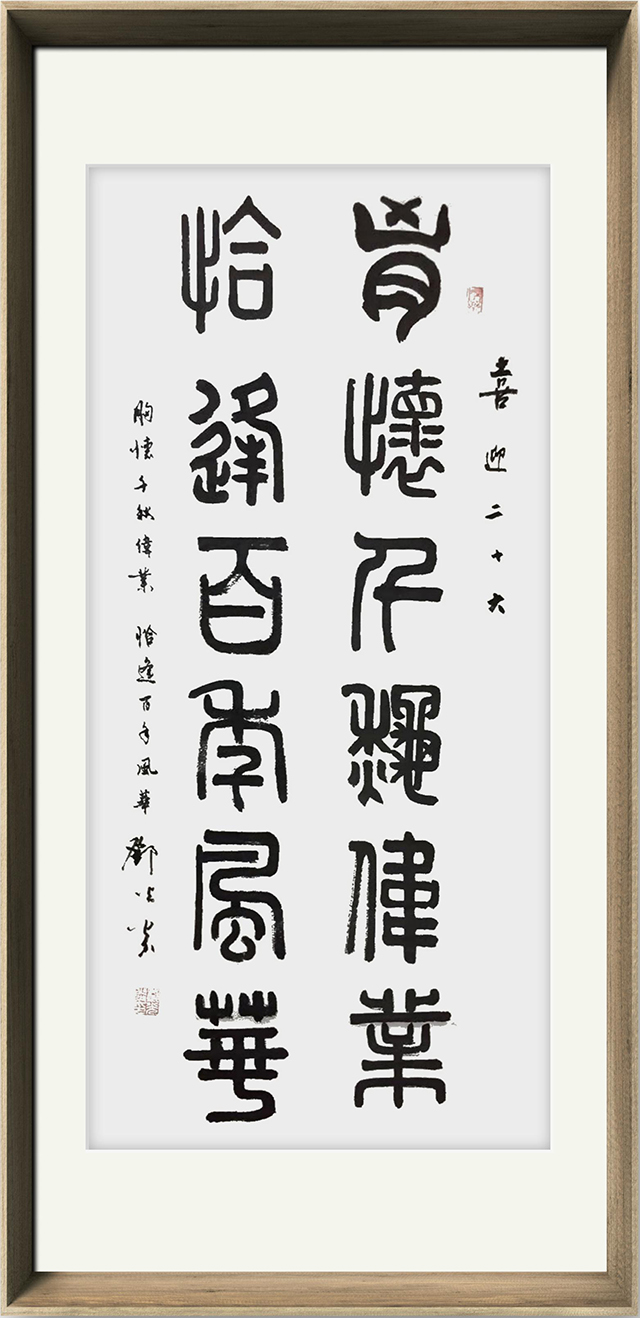 喜迎二十大
胷懷千秋偉業
恰逢百年風華
胸懷千秋偉業 恰逢百年風華 鄧